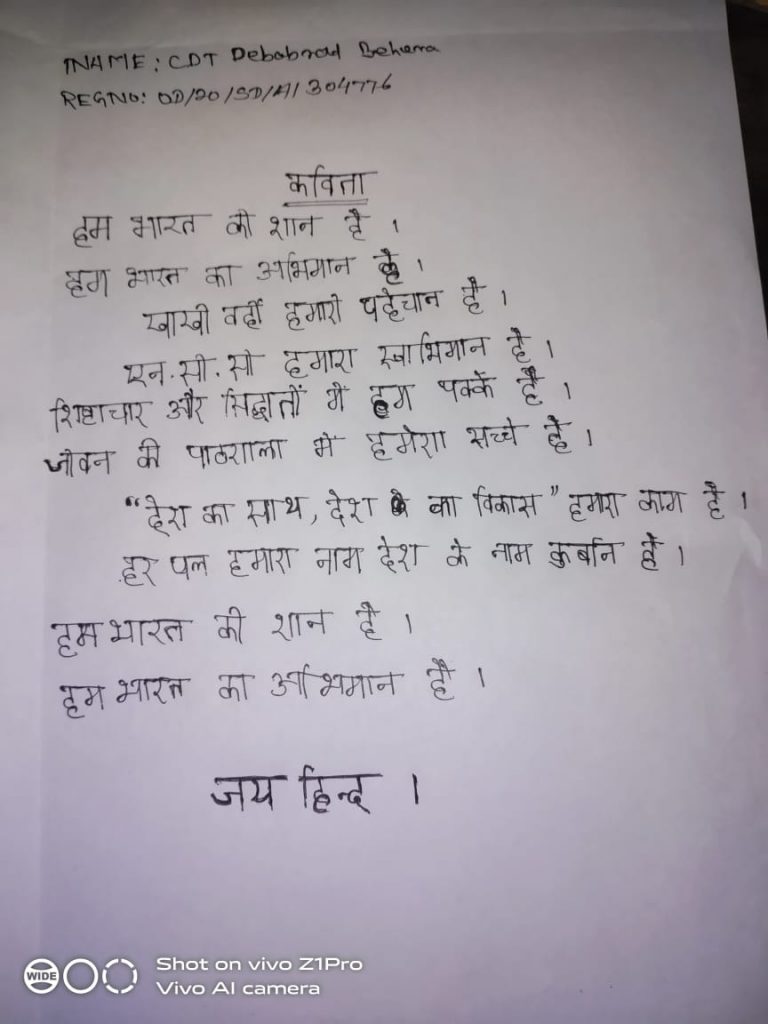 NAME: CDT Debabrad Behera
REGNO: OD/20/SD/A/304776
कविता
हम भारत की शान है ।
हम भारत का अभिमान है ।
खाखी वर्दी हमारी पहेचान है ।
एन.सी.सी हमारा स्वाभिमान है ।
शिष्टाचार और सिद्धातों में हम पक्के है ।
जीवन की पाठशाला में हमेशा सच्चे है ।
"देश का साथ, देश का विकास" हमारा काम है ।
हर पल हमारा नाम देश के नाम कुर्बान है ।
हम भारत की शान है ।
हम भारत का अभिमान है ।
जय हिन्द ।
WIDE
Shot on vivo Z1Pro
Vivo AI camera